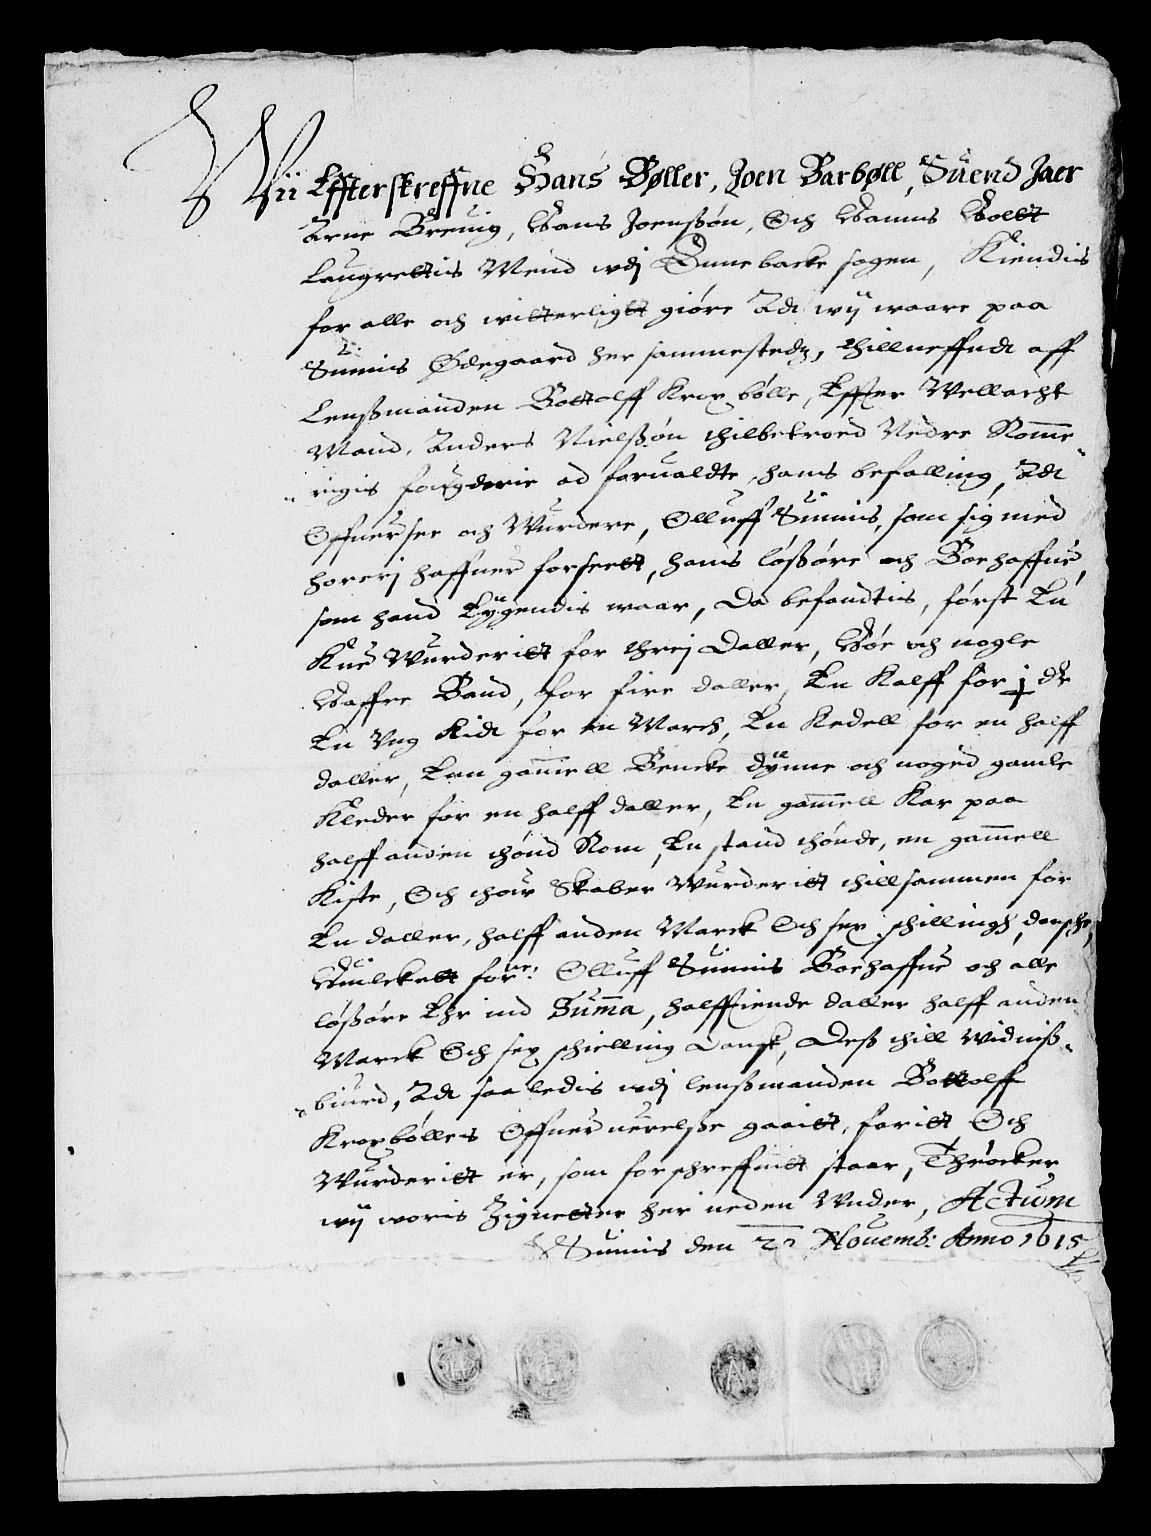 Wii Effterskreffne Hans Bøller, Joen Barbøll, Suend Jaer
Arne Breuig, Hans Joenssøn, Och Hanns Holtt
Laugrettis Mend udj Ennebacke sogen, Kiendis
for alle och witterligtt giøre Adt wij waare paa
Sunnis Ødegaard her sammestedz, thillneffndt aff
Lenssmanden Bottolff Kroxbølle, Effter Wellacht
Mand, Anders Nielssøn thilbetroed Nedre Romme
rigis fougderie ad forualdte, hans befalling, Adt
Offuersee och Wurdere, Olluff Sunnis, som sig med
horerj haffuer forseett, hans løssøre och Boehaffue,
som hand Eygendis waar, Da befandtis, først En
Kue Wurderitt for threj Daller, Høe och nogle
Haffre Baud, for fire daller, En Kalff for j dr
En Ung Kidt for en March, En Kedell for en halff
daller, Een gamell Bencke dynne och noged gamle
Kleder for en halff daller, En gamell Kar paa
halff anden thønd Rom, En stand thønde, en gamell
Kiste, Och thou Skaber Wurderitt thillsammen for
En daller, halff anden Marck Och sex schillingh dansche,
Huilckett forne: Olluff Sunnis Boehaffue och alle
løssøre Ehr ind Summa, halfftiende daller halff anden
Marck Och sex schielling Dansk, Dess thill Widniss-
biurd, Adt saaledis udj lenssmanden Bottolff
Kroxbølles Offueruerelsse gaaitt, faritt Och
Wurderitt er, som forschreffuitt staar, Thrøcker
wij woris Zignetter her neden Under, Actum
Sunnis den 22 Nouemb: Anno 1615